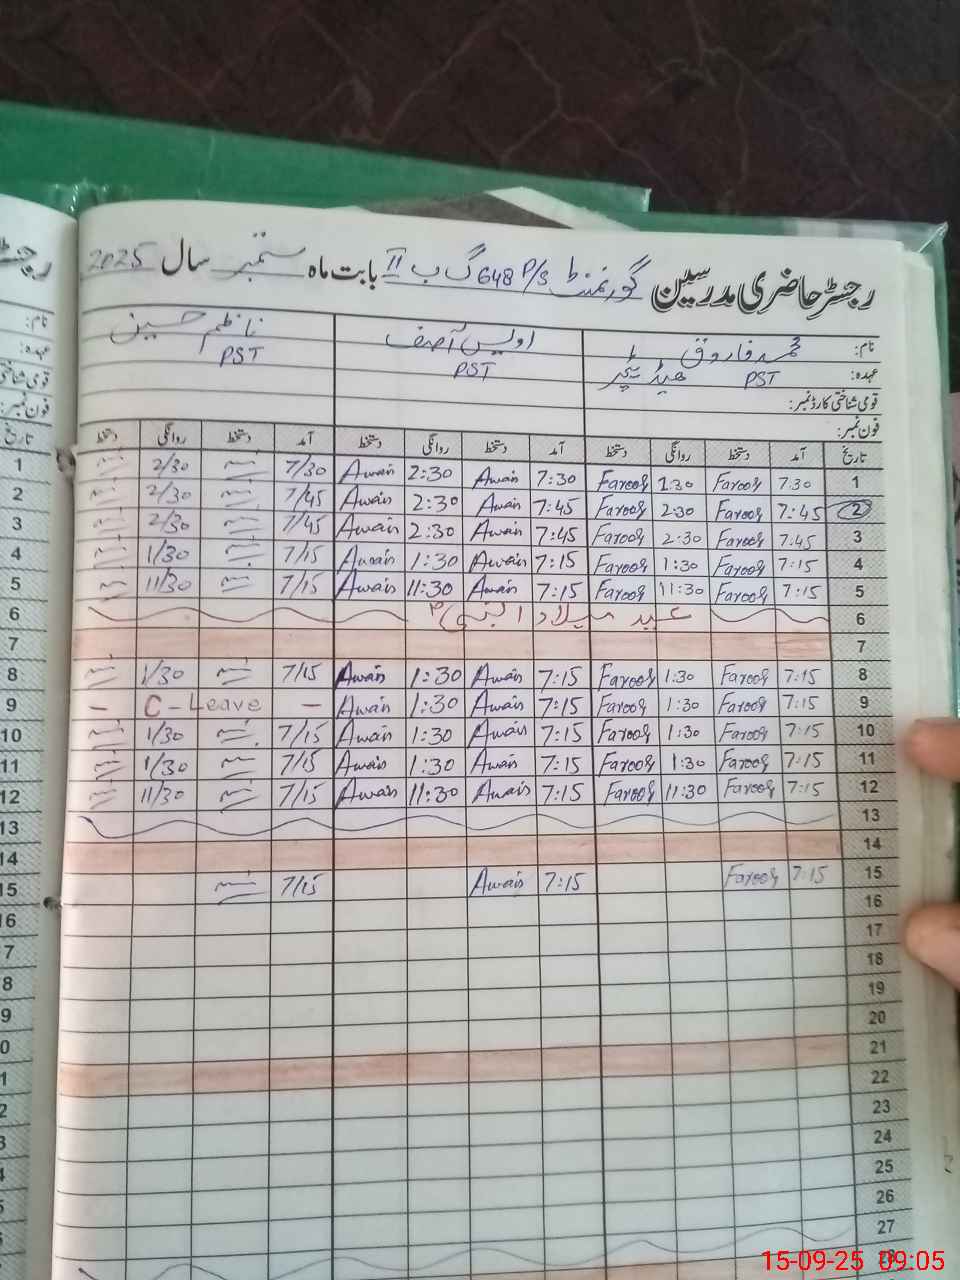 رجسٹر حاضری مدرسین گورنمنٹ P/S 648 گ ب II بابت ماہ ستمبر سال 2025
نام: محمد فاروق اویس آصف ناظم حسین
عہدہ: PST ہیڈ ٹیچر PST PST
قومی شناختی کارڈ نمبر:
فون نمبر:
تاریخ آمد دستخط روانگی دستخط آمد دستخط روانگی دستخط آمد دستخط روانگی دستخط
1 7:30 Farooq 1:30 Farooq 7:30 Awais 2:30 Awais 7/30 2/30
2 7:45 Farooq 2:30 Farooq 7:45 Awais 2:30 Awais 7/45 2/30
3 7:45 Farooq 2:30 Farooq 7:45 Awais 2:30 Awais 7/45 2/30
4 7:15 Farooq 1:30 Farooq 7:15 Awais 1:30 Awais 7/15 1/30
5 7:15 Farooq 11:30 Farooq 7:15 Awais 11:30 Awais 7/15 11/30
6 عید میلاد النبیؐ
7
8 7:15 Farooq 1:30 Farooq 7:15 Awais 1:30 Awais 7/15 1/30
9 7:15 Farooq 1:30 Farooq 7:15 Awais 1:30 Awais – C-Leave –
10 7:15 Farooq 1:30 Farooq 7:15 Awais 1:30 Awais 7/15 1/30
11 7:15 Farooq 1:30 Farooq 7:15 Awais 1:30 Awais 7/15 1/30
12 7:15 Farooq 11:30 Farooq 7:15 Awais 11:30 Awais 7/15 11/30
13
14
15 7:15 Farooq 7:15 Awais 7/15
16
17
18
19
20
21
22
23
24
25
26
27
28
15-09-25 09:05